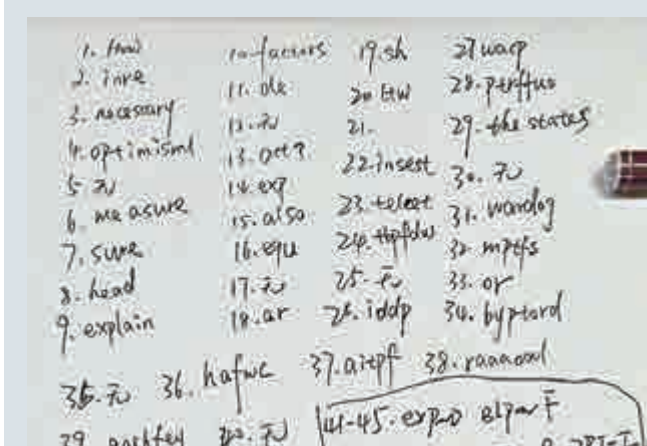 1. How
2. inre
3. necessary
4. optimisml
5. 无
6. measure
7. sure
8. head
9. explain
10. factors
11. ole
12. 无
13. oct?
14. exp
15. also
16. equ
17. 无
18. ar
19. sh
20. btw
21.
22. insest
23. teleet
24.
25. 无
26. iddp
27 warp
28.
29. the states
30. 无
31. wardog
32. mptfs
33. or
34. byptord
35. 无 36. hafwc 37. aitpf 38.
39. 40. 无 41-45.